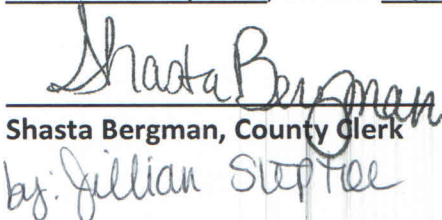 Shasta Bergman
Shasta Bergman, County Clerk
by: Jillian